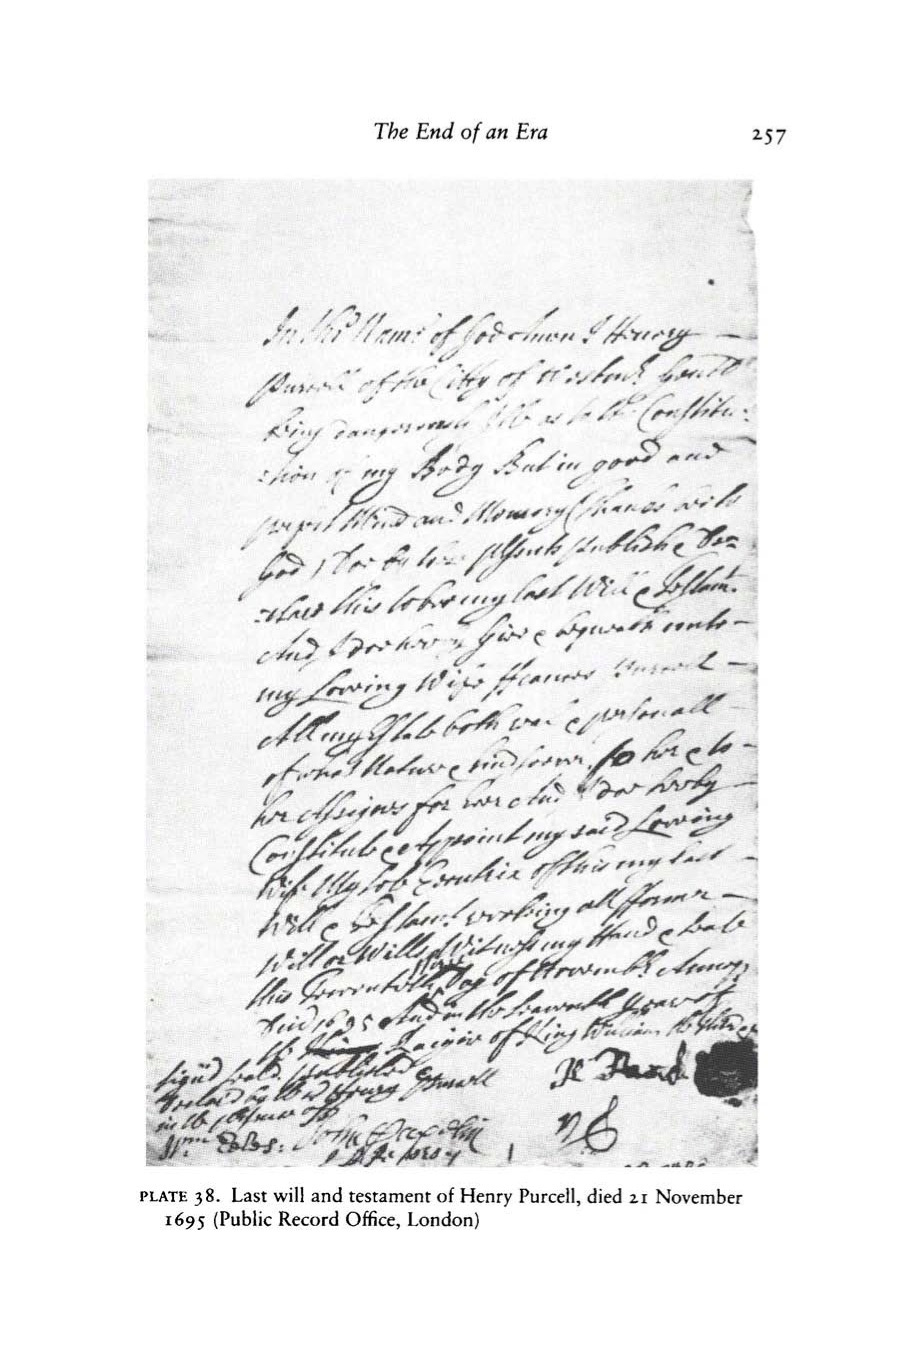 The End of an Era
257
In the Name of God Amen I Henery
Purcell of the Citty of Gent
being dangerously Ill as to the Constitu:
:tion of my Body But in good and
perfect Mind and Memory (thanks bee to
God) Doe by these publish & De=
:clare this to bee my last Will & Testam.
And I doe hereby Give & bequeath unto
my Loveing Wife ffrances Purcell
All my Estate both reall & personall
of what Nature & kind soever, to her & to
her Assignes for ever And I doe hereby
Constitute & Appoint my said Loveing
Wife My sole Executrix of this my last
Will & Testamt revokeing all fformer
Will or Wills Witnesse my Hand & Seale
this Day of Novembr Annoq
Dni 1695 And in the Seaventh Yeare of
the Raigne of King William the
Signed Seald Published
Declared by the sd Henry Purcell
in the presence of
Wm Eeles: John
H Purcell
PLATE 38. Last will and testament of Henry Purcell, died 21 November
1695 (Public Record Office, London)